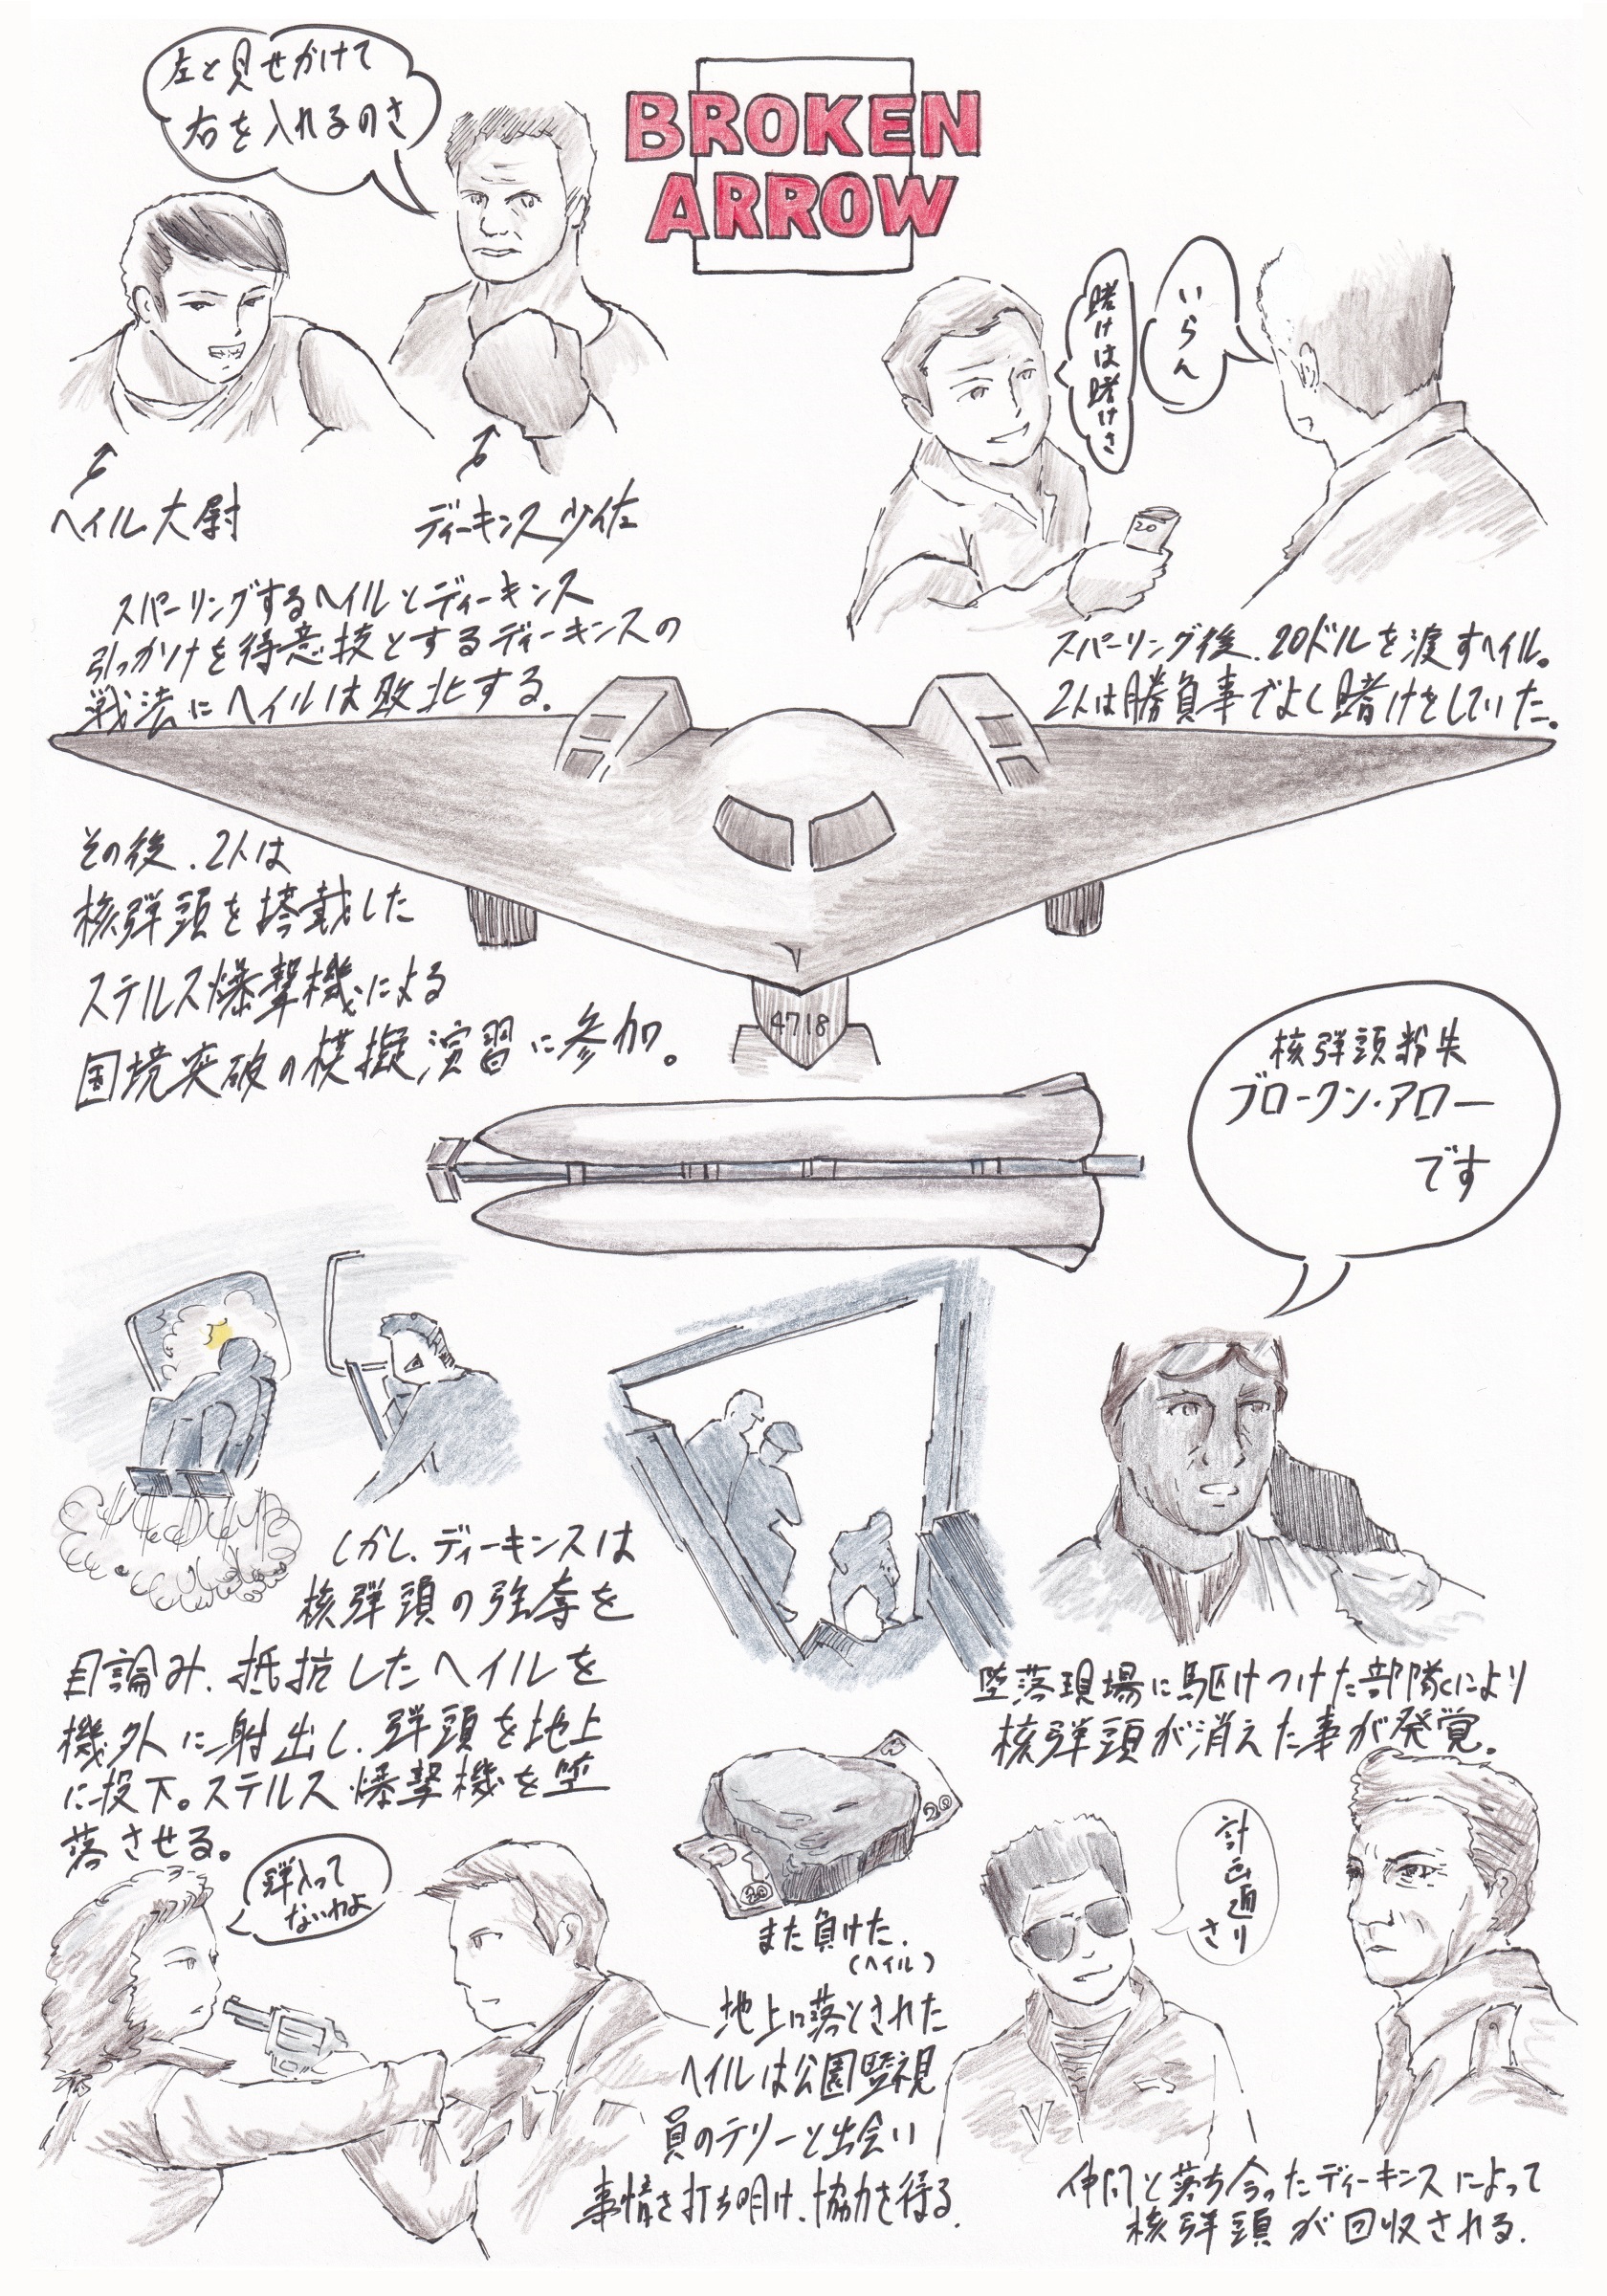 左と見せかけて
右を入れるのさ
BROKEN
ARROW
賭けは賭けさ
いらん
20
ヘイル大尉
ディーキンス少佐
スパーリングするヘイルとディーキンス
引っかけを得意技とするディーキンスの
戦法にヘイルは敗北する。
スパーリング後、20ドルを渡すヘイル。
2人は勝負事でよく賭けをしていた。
その後、2人は
核弾頭を搭載した
ステルス爆撃機による
国境突破の模擬演習に参加。
4718
核弾頭紛失
ブロークン・アロー
です
しかし、ディーキンスは
核弾頭の強奪を
目論み、抵抗したヘイルを
機外に射出し、弾頭を地上
に投下。ステルス爆撃機を墜
落させる。
墜落現場に駆けつけた部隊により
核弾頭が消えた事が発覚。
弾入って
ないわよ
20
20
また負けた.
(ヘイル)
地上に落とされた
ヘイルは公園監視
員のテリーと出会い
事情を打ち明け、協力を得る.
計画通り
さ
仲間と落ち合ったディーキンスによって
核弾頭が回収される.